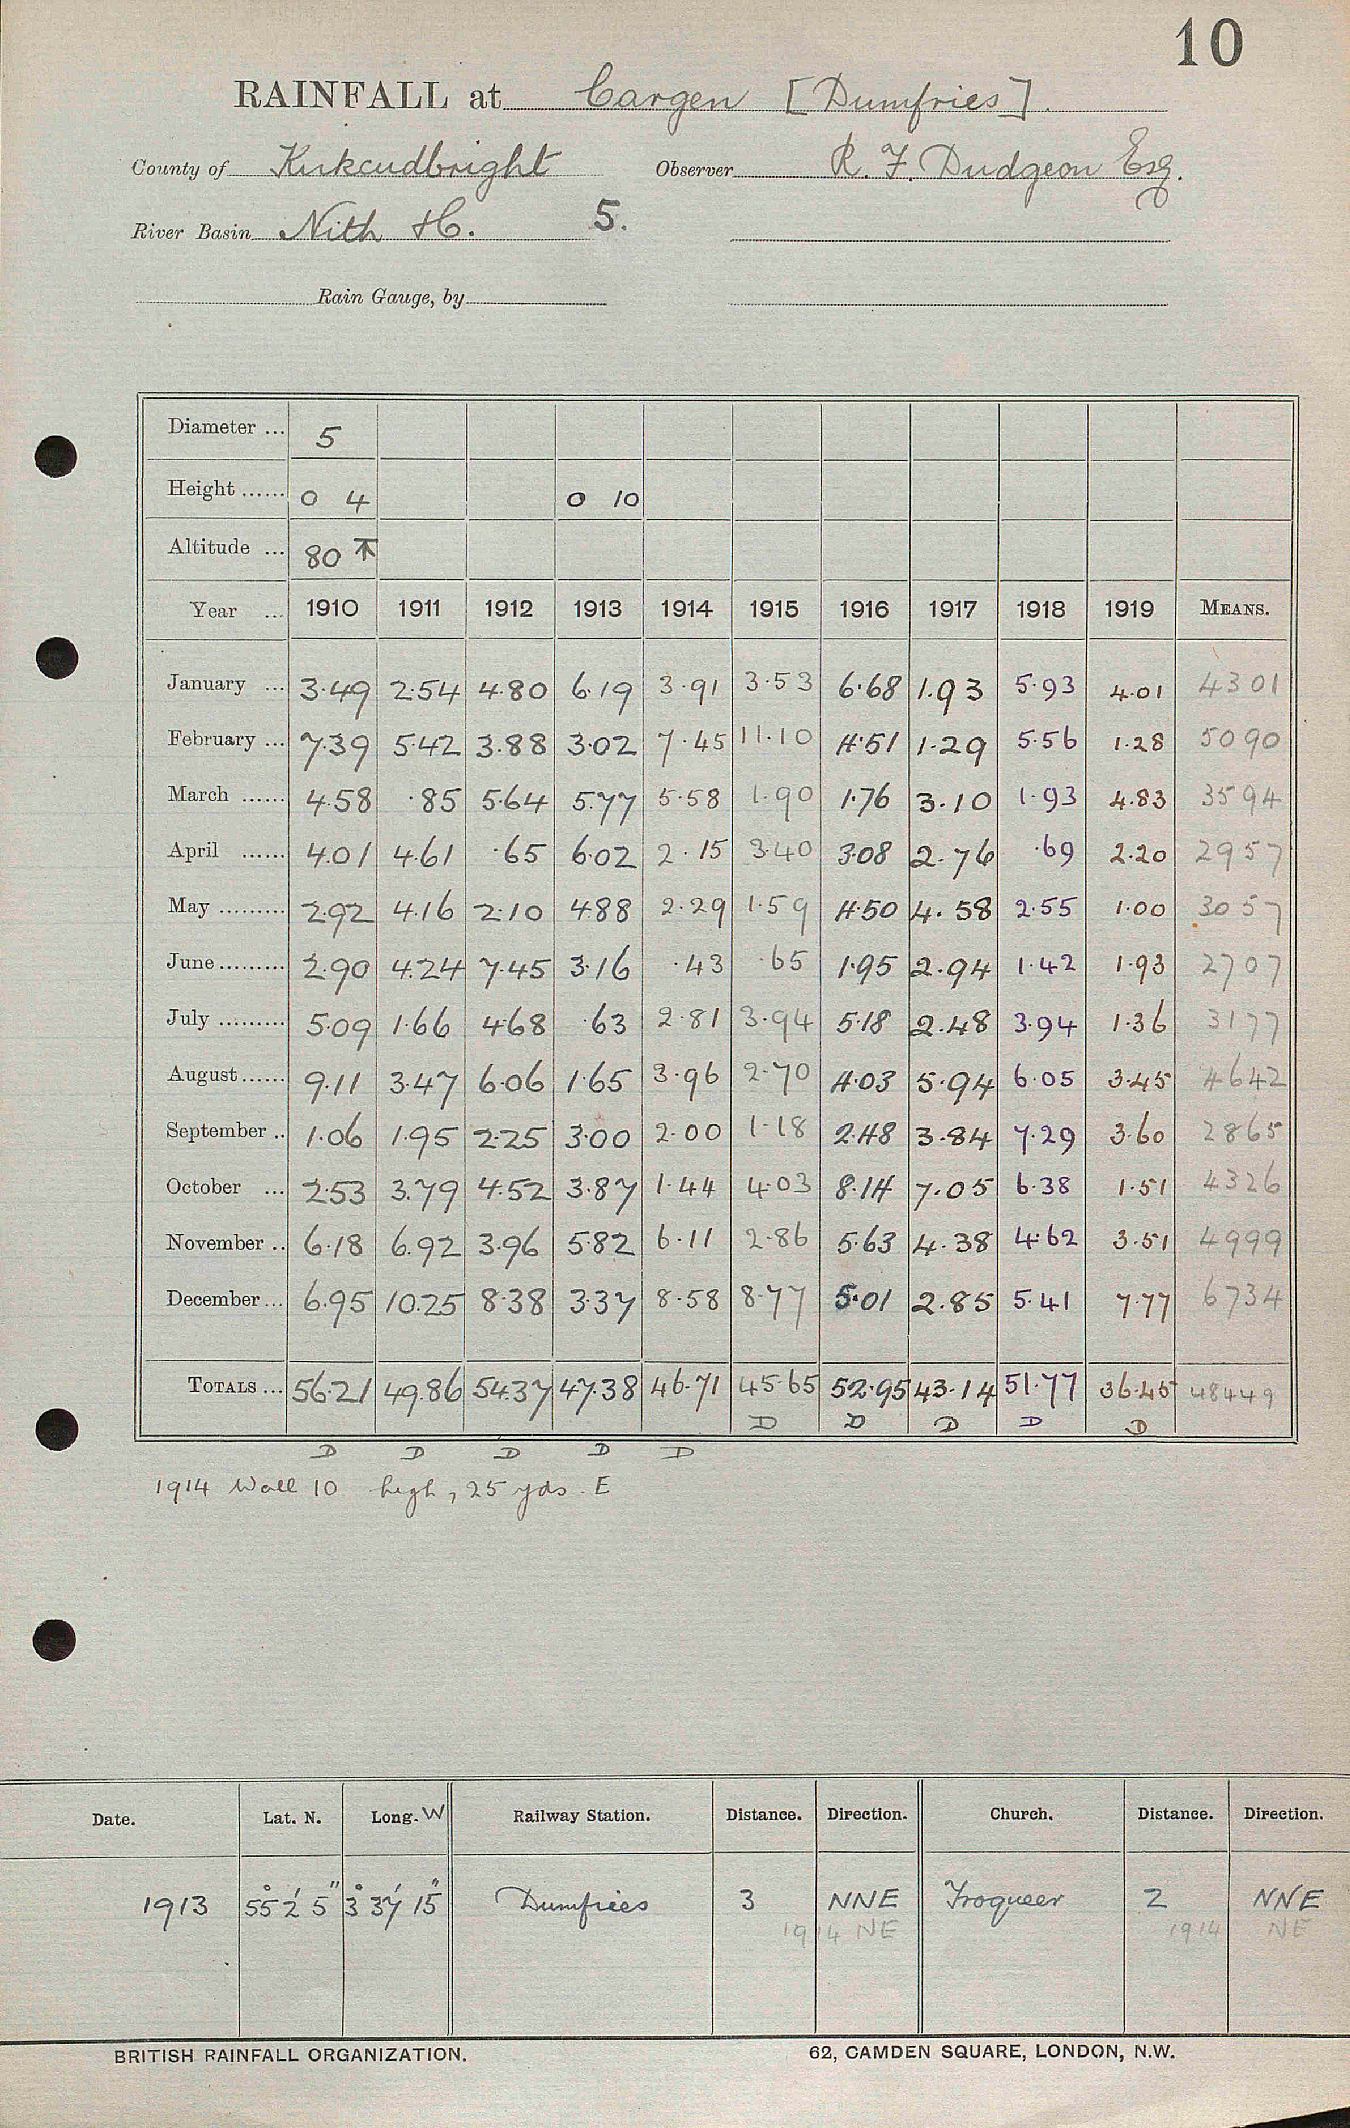 10
RAINFALL at Cargen [Dumfries].
County of Kirkcudbright Observer R. F. Dudgeon Esq.
River Basin Nith &c. 5.
Rain Gauge, by
Diameter ... 5
Height ...... 0 4 0 10
Altitude ... 80 ↑
Year ... 1910 1911 1912 1913 1914 1915 1916 1917 1918 1919 MEANS.
January ... 3.49 2.54 4.80 6.19 3.91 3.53 6.68 1.93 5.93 4.01 4301
February ... 7.39 5.42 3.88 3.02 7.45 11.10 4.51 1.29 5.56 1.28 5090
March ...... 4.58 .85 5.64 5.77 5.58 1.90 1.76 3.10 1.93 4.83 3594
April ...... 4.01 4.61 .65 6.02 2.15 3.40 3.08 2.76 .69 2.20 2957
May ......... 2.92 4.16 2.10 4.88 2.29 1.59 4.50 4.58 2.55 1.00 3057
June ......... 2.90 4.24 7.45 3.16 .43 .65 1.95 2.94 1.42 1.93 2707
July ......... 5.09 1.66 4.68 .63 2.81 3.94 5.18 2.48 3.94 1.36 3177
August ...... 9.11 3.47 6.06 1.65 3.96 2.70 4.03 5.94 6.05 3.45 4642
September .. 1.06 1.95 2.25 3.00 2.00 1.18 2.48 3.84 7.29 3.60 2865
October ... 2.53 3.79 4.52 3.87 1.44 4.03 8.14 7.05 6.38 1.51 4326
November .. 6.18 6.92 3.96 5.82 6.11 2.86 5.63 4.38 4.62 3.51 4999
December ... 6.95 10.25 8.38 3.37 8.58 8.77 5.01 2.85 5.41 7.77 6734
TOTALS ... 56.21 49.86 54.37 47.38 46.71 45.65 52.95 43.14 51.77 36.45 48449
D D D D D
D D D D D
1914 Wall 10 high, 25 yds. E
Date. Lat. N. Long. W Railway Station. Distance. Direction. Church. Distance. Direction.
1913 55° 2' 5" 3° 37' 15" Dumfries 3 NNE Troqueer 2 NNE
1914 NE 1914 NE
BRITISH RAINFALL ORGANIZATION. 62, CAMDEN SQUARE, LONDON, N.W.